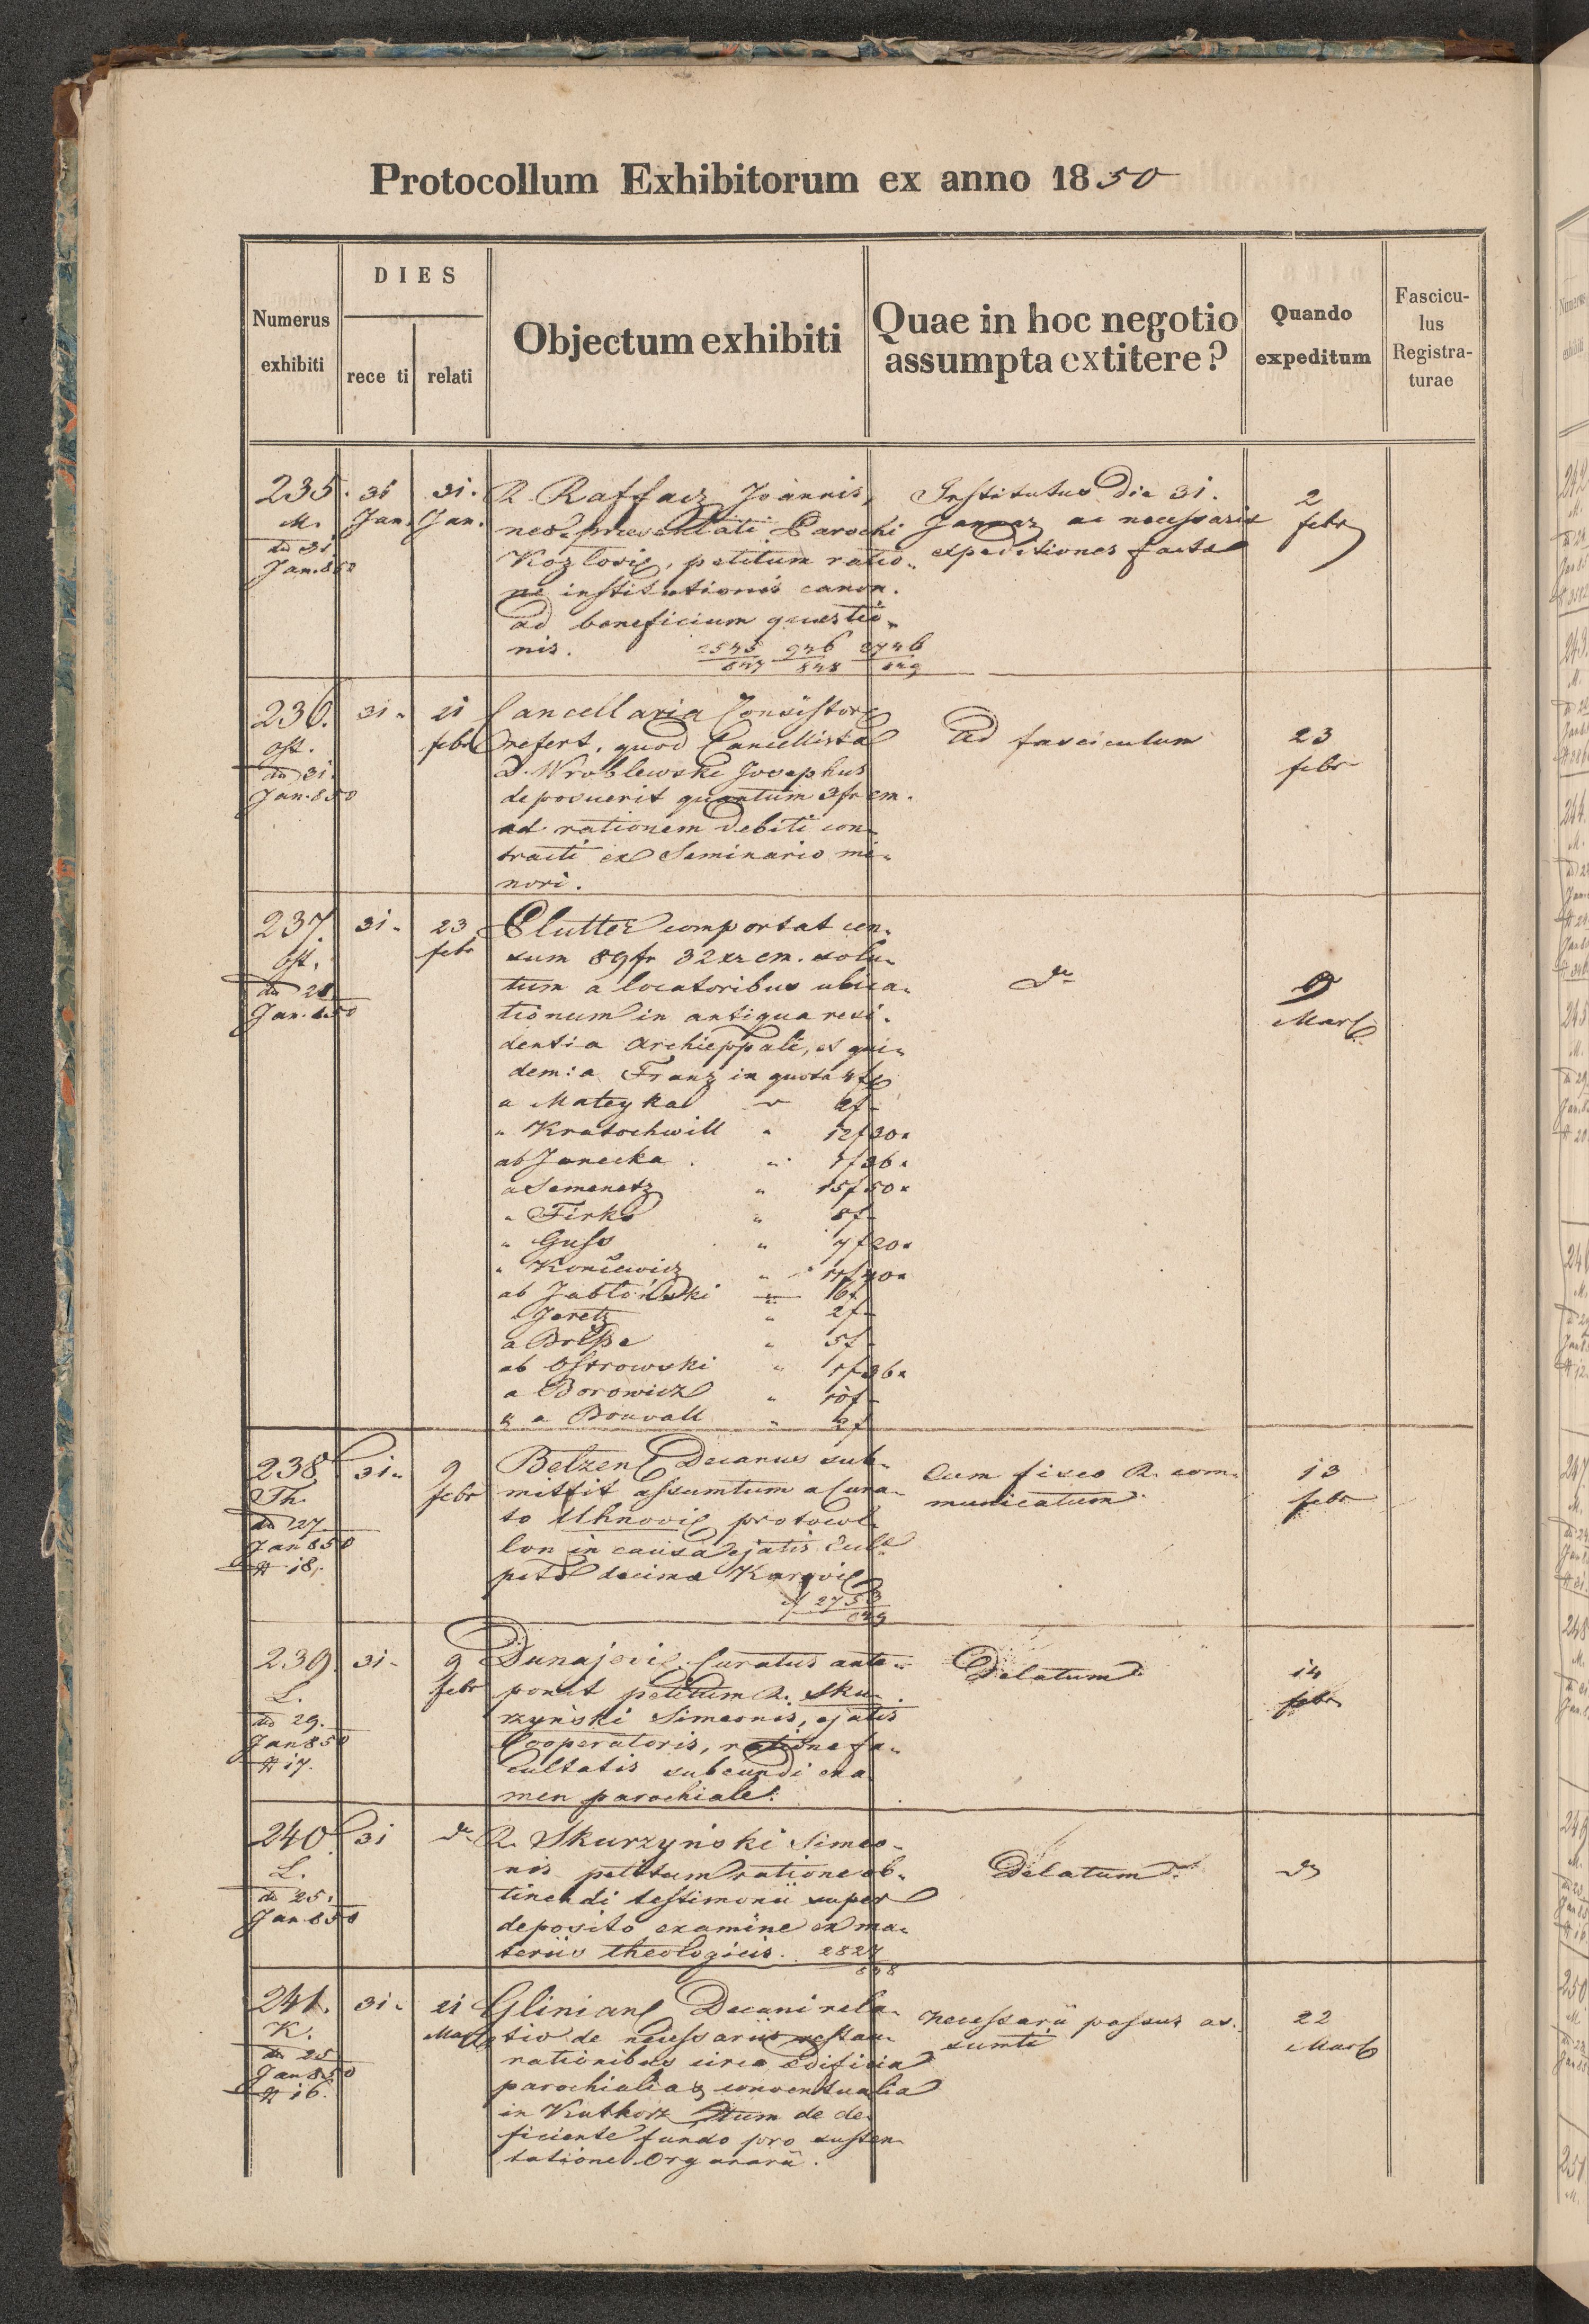 Protocollum Exhibitorum ex anno 1850
Numerus exhibiti
DIES
rece ti
relati
Objectum exhibiti
Quae in hoc negotio assumpta extitere?
Quando expeditum
Fascicu-
lus
Registra-
turae
235.
M.
do 31
Jan. 850
31
Jan.
31.
Jan.
R. Raffacz Joannis,
neo-praesentati Parochi
Kozlovie, petitum ratio-
ne institutionis canon.
ad beneficium questio-
nis. 2545/847 946/848 2746/849
Institutus Die 31.
Januar ac necessaria
expeditiones factae
2
febr
236.
Ost.
do 31.
Jan. 850
31.
21
febr
Cancellaria Consistore
refert, quod Cancellista
D. Wroblewski Josephus
deposuerit quantum 3 fr cm.
ad rationem debiti con-
tracti ex Seminario mi-
nori.
ad fasciculum
23
febr
237
Ost.
do 28
Jan. 850
31.
23
febr
Plutter comportat cen-
sum 89 fr 32 xr cm. solu-
tum a locatoribus ubica-
tionum in antiqua resi-
dentia Archieppali, et qui-
dem: a Franz in quota 4 f
a Mateyka " 2f-
" Kratochwill " 12f 30x
ab Janecka " 1f 36x
a Semenetz " 15f 50x
" Firko " 8f-
" Guss " 7f 20x
" Koniewicz " 11f 40x
ab Jabłoński " 16f
" Jaretz " 2f-
a Brilße " 5f-
ab Ostrowski " 1f 36x
a Borowicz " 10f-
& a Bouvall " 2f
do
9
Mart
238
Th.
do 27
Jan 850
# 18.
31.
9
febr
Belzen Decanus sub-
mittit assumtum a Cura-
to Uhnovie protocol-
lon in causa ejatis Cult
peto decima Karovie
2753/849
Cum fisco R. com-
municatum
13
febr
239.
L.
do 29.
Jan 850
# 17.
31.
9
febr
Dunajovie Curatus ante-
ponit petitum R. Sku-
rzyński Simeonis, ejatis
Cooperatoris, ratione fa-
cultatis subeundi exa
men parochiale.
Delatum
14
febr
240
L.
do 25.
Jan 850
31
do
R. Skurzyński Simeo-
nis petitum ratione ob-
tinendi testimonii super
deposito examine ex ma-
teriis theologicis. 2827/848
Delatum
do
241.
K.
do 25
Jan 850
# 16.
31.
21
Mart
Glinian Decani rela-
tio de necessariis restau-
rationibus circa Edificia
parochialia & conventualia
in Kutkorz tum de de-
ficiente fundo pro susten-
tatione Organarii.
Necessarii passus as-
sumti
22
Mart